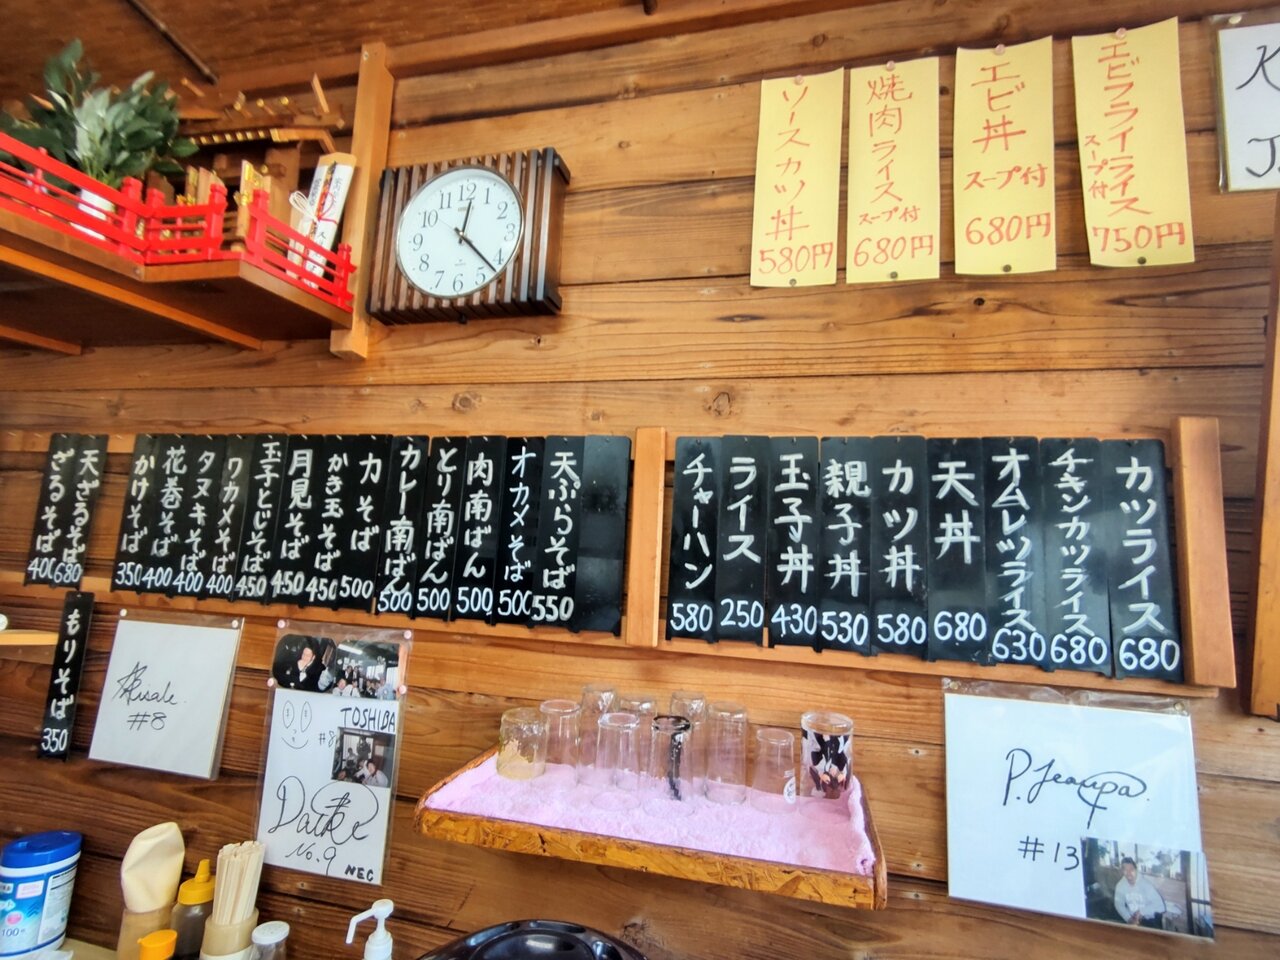 ソースカツ丼
580円
焼肉ライス
スープ付
680円
エビ丼
スープ付
680円
エビフライライス
スープ付
750円
K
J
12
1
2
3
4
5
6
7
8
9
10
11
天ざるそば
680
ざるそば
400
かけそば
350
花巻そば
400
タヌキそば
400
ワカメそば
400
玉子とじそば
450
月見そば
450
かき玉そば
450
力そば
500
カレー南ばん
500
とり南ばん
500
肉南ばん
500
オカメそば
500
天ぷらそば
550
チャーハン
580
ライス
250
玉子丼
430
親子丼
530
カツ丼
580
天丼
680
オムレツライス
630
チキンカツライス
680
カツライス
680
もりそば
350
#8
TOSHIBA
#8
No.9
NEC
#13
100